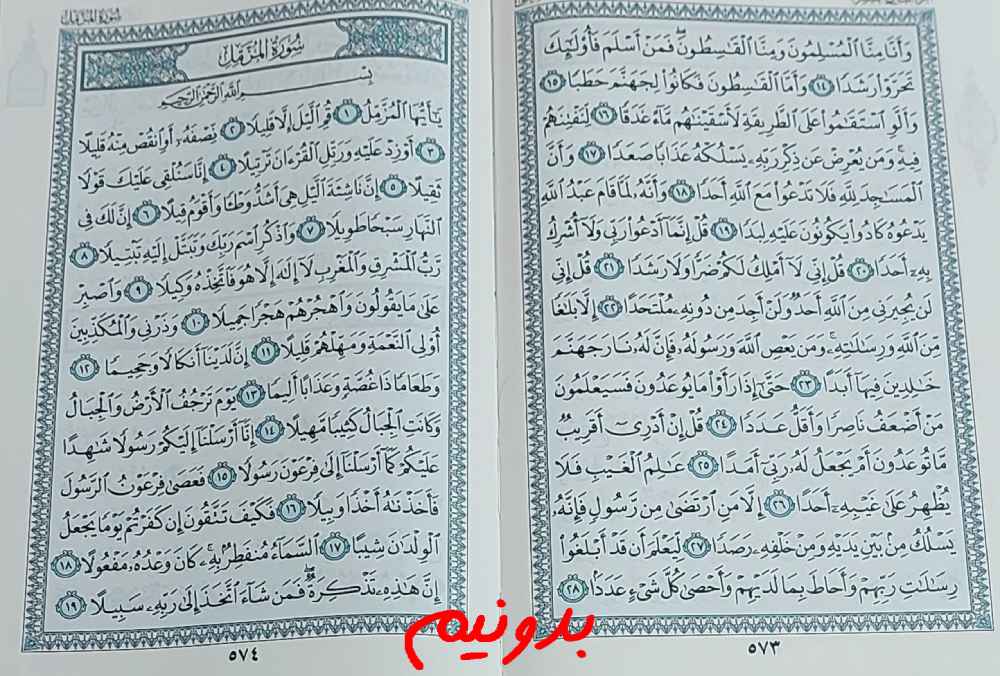 وَأَنَّا مِنَّا ٱلْمُسْلِمُونَ وَمِنَّا ٱلْقَـٰسِطُونَ ۖ فَمَنْ أَسْلَمَ فَأُو۟لَـٰٓئِكَ
تَحَرَّوْا۟ رَشَدًا ١٤ وَأَمَّا ٱلْقَـٰسِطُونَ فَكَانُوا۟ لِجَهَنَّمَ حَطَبًا ١٥
وَأَلَّوِ ٱسْتَقَـٰمُوا۟ عَلَى ٱلطَّرِيقَةِ لَأَسْقَيْنَـٰهُم مَّآءً غَدَقًا ١٦ لِّنَفْتِنَهُمْ
فِيهِ ۚ وَمَن يُعْرِضْ عَن ذِكْرِ رَبِّهِۦ يَسْلُكْهُ عَذَابًا صَعَدًا ١٧ وَأَنَّ
ٱلْمَسَـٰجِدَ لِلَّهِ فَلَا تَدْعُوا۟ مَعَ ٱللَّهِ أَحَدًا ١٨ وَأَنَّهُۥ لَمَّا قَامَ عَبْدُ ٱللَّهِ
يَدْعُوهُ كَادُوا۟ يَكُونُونَ عَلَيْهِ لِبَدًا ١٩ قُلْ إِنَّمَآ أَدْعُوا۟ رَبِّى وَلَآ أُشْرِكُ
بِهِۦٓ أَحَدًا ٢٠ قُلْ إِنِّى لَآ أَمْلِكُ لَكُمْ ضَرًّا وَلَا رَشَدًا ٢١ قُلْ إِنِّى
لَن يُجِيرَنِى مِنَ ٱللَّهِ أَحَدٌ وَلَنْ أَجِدَ مِن دُونِهِۦ مُلْتَحَدًا ٢٢ إِلَّا بَلَـٰغًا
مِّنَ ٱللَّهِ وَرِسَـٰلَـٰتِهِۦ ۚ وَمَن يَعْصِ ٱللَّهَ وَرَسُولَهُۥ فَإِنَّ لَهُۥ نَارَ جَهَنَّمَ
خَـٰلِدِينَ فِيهَآ أَبَدًا ٢٣ حَتَّىٰٓ إِذَا رَأَوْا۟ مَا يُوعَدُونَ فَسَيَعْلَمُونَ
مَنْ أَضْعَفُ نَاصِرًا وَأَقَلُّ عَدَدًا ٢٤ قُلْ إِنْ أَدْرِىٓ أَقَرِيبٌ
مَّا تُوعَدُونَ أَمْ يَجْعَلُ لَهُۥ رَبِّىٓ أَمَدًا ٢٥ عَـٰلِمُ ٱلْغَيْبِ فَلَا
يُظْهِرُ عَلَىٰ غَيْبِهِۦٓ أَحَدًا ٢٦ إِلَّا مَنِ ٱرْتَضَىٰ مِن رَّسُولٍ فَإِنَّهُۥ
يَسْلُكُ مِنۢ بَيْنِ يَدَيْهِ وَمِنْ خَلْفِهِۦ رَصَدًا ٢٧ لِّيَعْلَمَ أَن قَدْ أَبْلَغُوا۟
رِسَـٰلَـٰتِ رَبِّهِمْ وَأَحَاطَ بِمَا لَدَيْهِمْ وَأَحْصَىٰ كُلَّ شَىْءٍ عَدَدًۢا ٢٨
٥٧٣
سُورَةُ المُزَّمِّل
سُورَةُ المُزَّمِّل
بِسْمِ ٱللَّهِ ٱلرَّحْمَـٰنِ ٱلرَّحِيمِ
يَـٰٓأَيُّهَا ٱلْمُزَّمِّلُ ١ قُمِ ٱلَّيْلَ إِلَّا قَلِيلًا ٢ نِّصْفَهُۥٓ أَوِ ٱنقُصْ مِنْهُ قَلِيلًا
٣ أَوْ زِدْ عَلَيْهِ وَرَتِّلِ ٱلْقُرْءَانَ تَرْتِيلًا ٤ إِنَّا سَنُلْقِى عَلَيْكَ قَوْلًا
ثَقِيلًا ٥ إِنَّ نَاشِئَةَ ٱلَّيْلِ هِىَ أَشَدُّ وَطْـًٔا وَأَقْوَمُ قِيلًا ٦ إِنَّ لَكَ فِى
ٱلنَّهَارِ سَبْحًا طَوِيلًا ٧ وَٱذْكُرِ ٱسْمَ رَبِّكَ وَتَبَتَّلْ إِلَيْهِ تَبْتِيلًا ٨
رَّبُّ ٱلْمَشْرِقِ وَٱلْمَغْرِبِ لَآ إِلَـٰهَ إِلَّا هُوَ فَٱتَّخِذْهُ وَكِيلًا ٩ وَٱصْبِرْ
عَلَىٰ مَا يَقُولُونَ وَٱهْجُرْهُمْ هَجْرًا جَمِيلًا ١٠ وَذَرْنِى وَٱلْمُكَذِّبِينَ
أُو۟لِى ٱلنَّعْمَةِ وَمَهِّلْهُمْ قَلِيلًا ١١ إِنَّ لَدَيْنَآ أَنكَالًا وَجَحِيمًا ١٢
وَطَعَامًا ذَا غُصَّةٍ وَعَذَابًا أَلِيمًا ١٣ يَوْمَ تَرْجُفُ ٱلْأَرْضُ وَٱلْجِبَالُ
وَكَانَتِ ٱلْجِبَالُ كَثِيبًا مَّهِيلًا ١٤ إِنَّآ أَرْسَلْنَآ إِلَيْكُمْ رَسُولًا شَـٰهِدًا
عَلَيْكُمْ كَمَآ أَرْسَلْنَآ إِلَىٰ فِرْعَوْنَ رَسُولًا ١٥ فَعَصَىٰ فِرْعَوْنُ ٱلرَّسُولَ
فَأَخَذْنَـٰهُ أَخْذًا وَبِيلًا ١٦ فَكَيْفَ تَتَّقُونَ إِن كَفَرْتُمْ يَوْمًا يَجْعَلُ
ٱلْوِلْدَٰنَ شِيبًا ١٧ ٱلسَّمَآءُ مُنفَطِرٌۢ بِهِۦ ۚ كَانَ وَعْدُهُۥ مَفْعُولًا ١٨
إِنَّ هَـٰذِهِۦ تَذْكِرَةٌ ۖ فَمَن شَآءَ ٱتَّخَذَ إِلَىٰ رَبِّهِۦ سَبِيلًا ١٩
٥٧٤
بدونیم